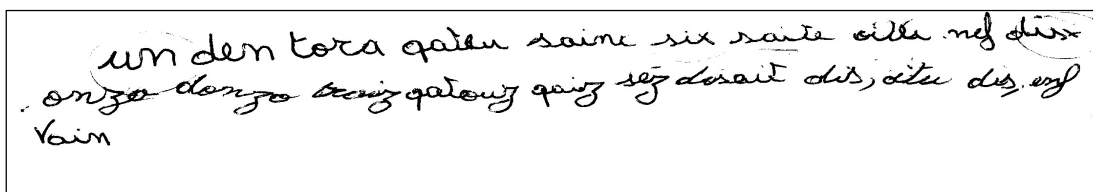 un den tora qateu sainc six saite oitte nef disx
onzo donzo treiz qatouz qaiz sez disait dis, oitu dis, enf
Vain